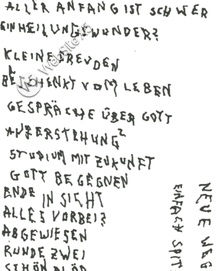 ALLER ANFANG IST SCHWER
EIN HEILUNGSWUNDER?
KLEINE FREUDEN
BESCHENKT VOM LEBEN
GESPRÄCHE ÜBER GOTT
AUFERSTEHUNG²
STUDIUM MIT ZUKUNFT
GOTT BEGEGNEN
ENDE IN SICHT
ALLES VORBEI?
ABGEWIESEN
RUNDE ZWEI
SCHÖN BLÖD
NEUE WEG
EINFACH SPIT